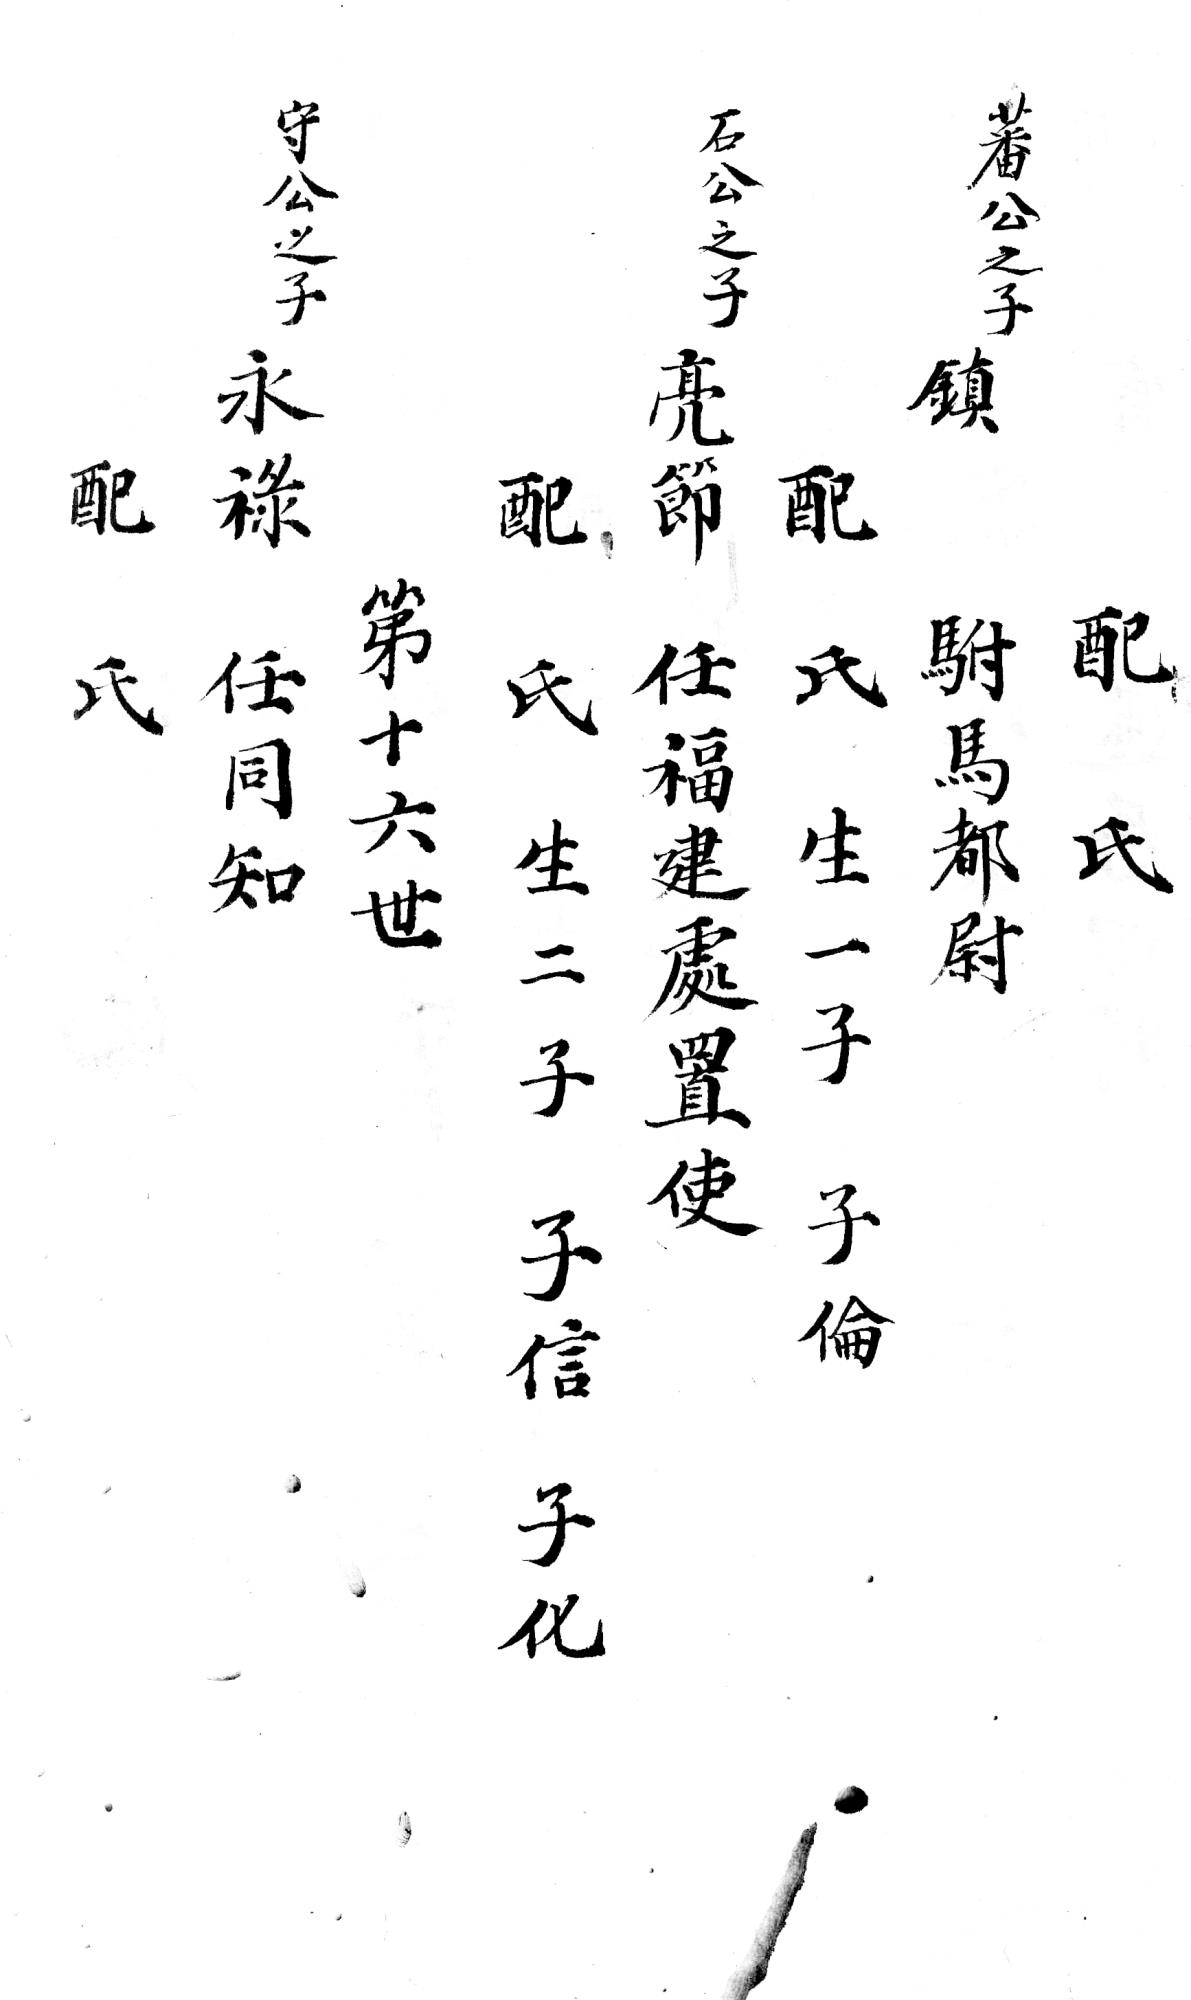 配 氏
蕃公之子 鎮 駙馬都尉
配 氏 生一子 子倫
石公之子 亮節 任福建處置使
配 氏 生二子 子信 子化
第十六世
守公之子 永祿 任同知
配 氏